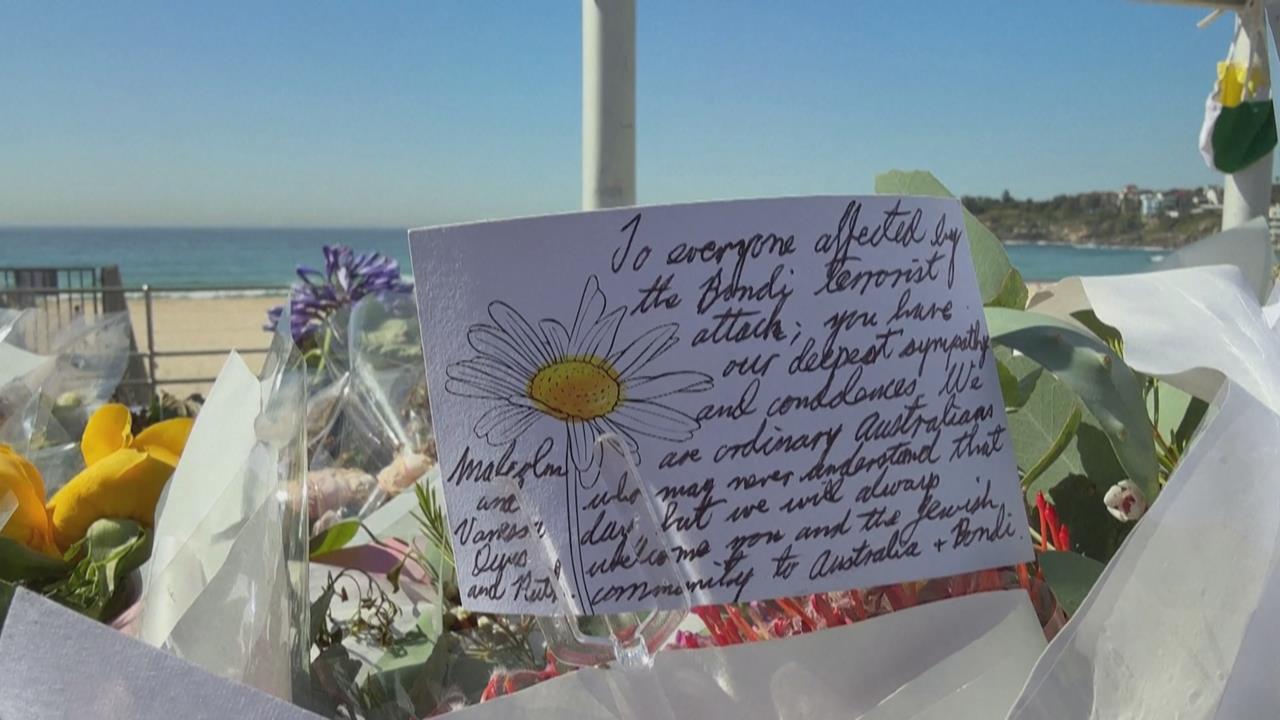 To everyone affected by
the Bondi terrorist
attack; you have
our deepest sympathy
and condolences. We
are ordinary Australians
who may never understand that
day but we will always
welcome you and the Jewish
community to Australia + Bondi.
Malcolm
and
Vanessa
and